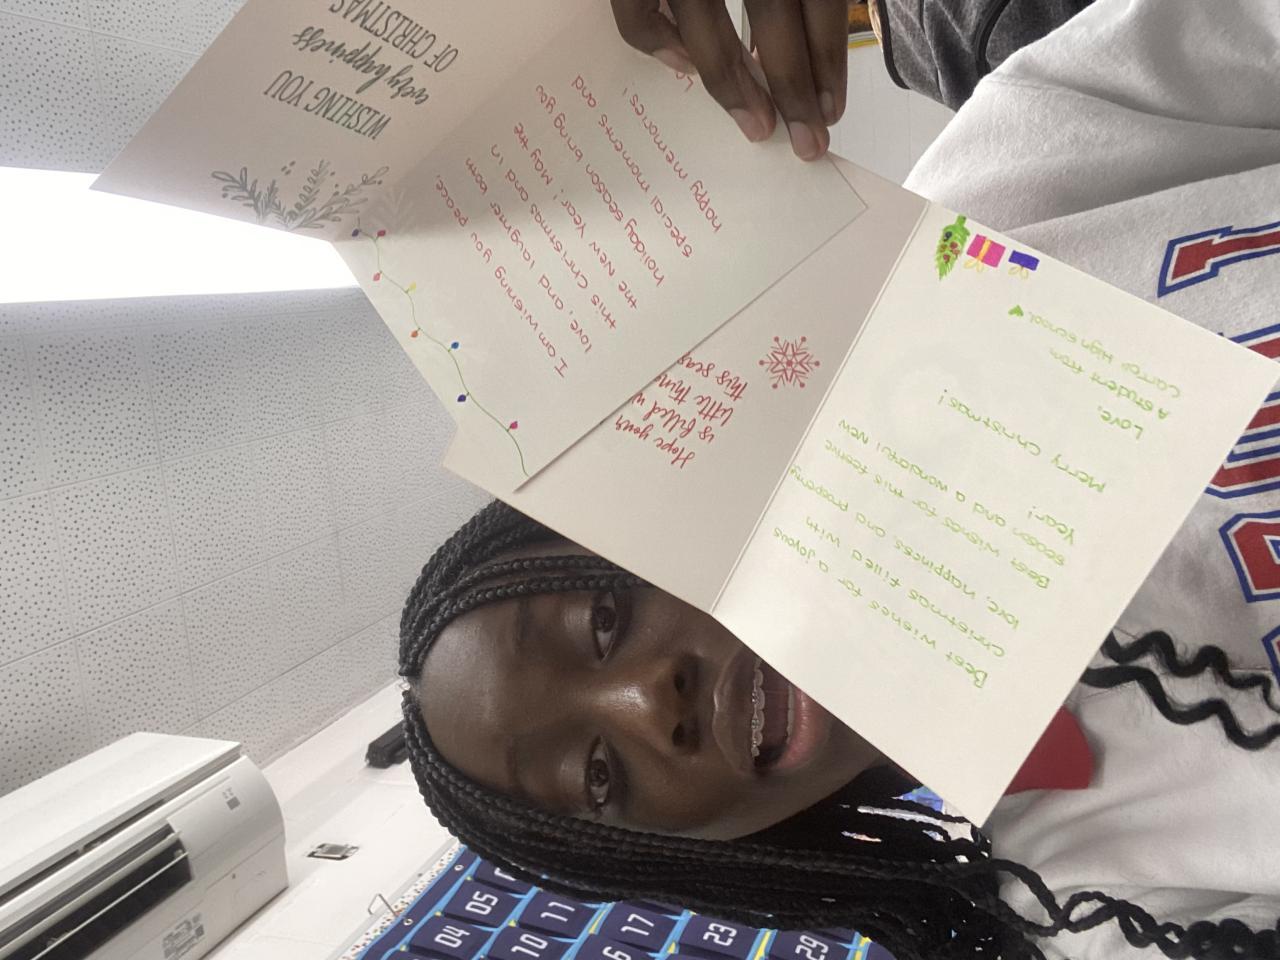 WISHING YOU
every happiness
OF CHRISTMAS
I am wishing you peace,
love, and laughter both
this Christmas and in
the New Year! May the
holiday season bring you
special moments and
happy memories!
Hope your
is filled w
little thin
this seas
Best wishes for a joyous
christmas filled with
love, happiness and prosperity
Best wishes for this festive
season and a wonderful New
Year!
Merry Christmas!
Love,
A student from
High School
04
05
10
11
17
23
29